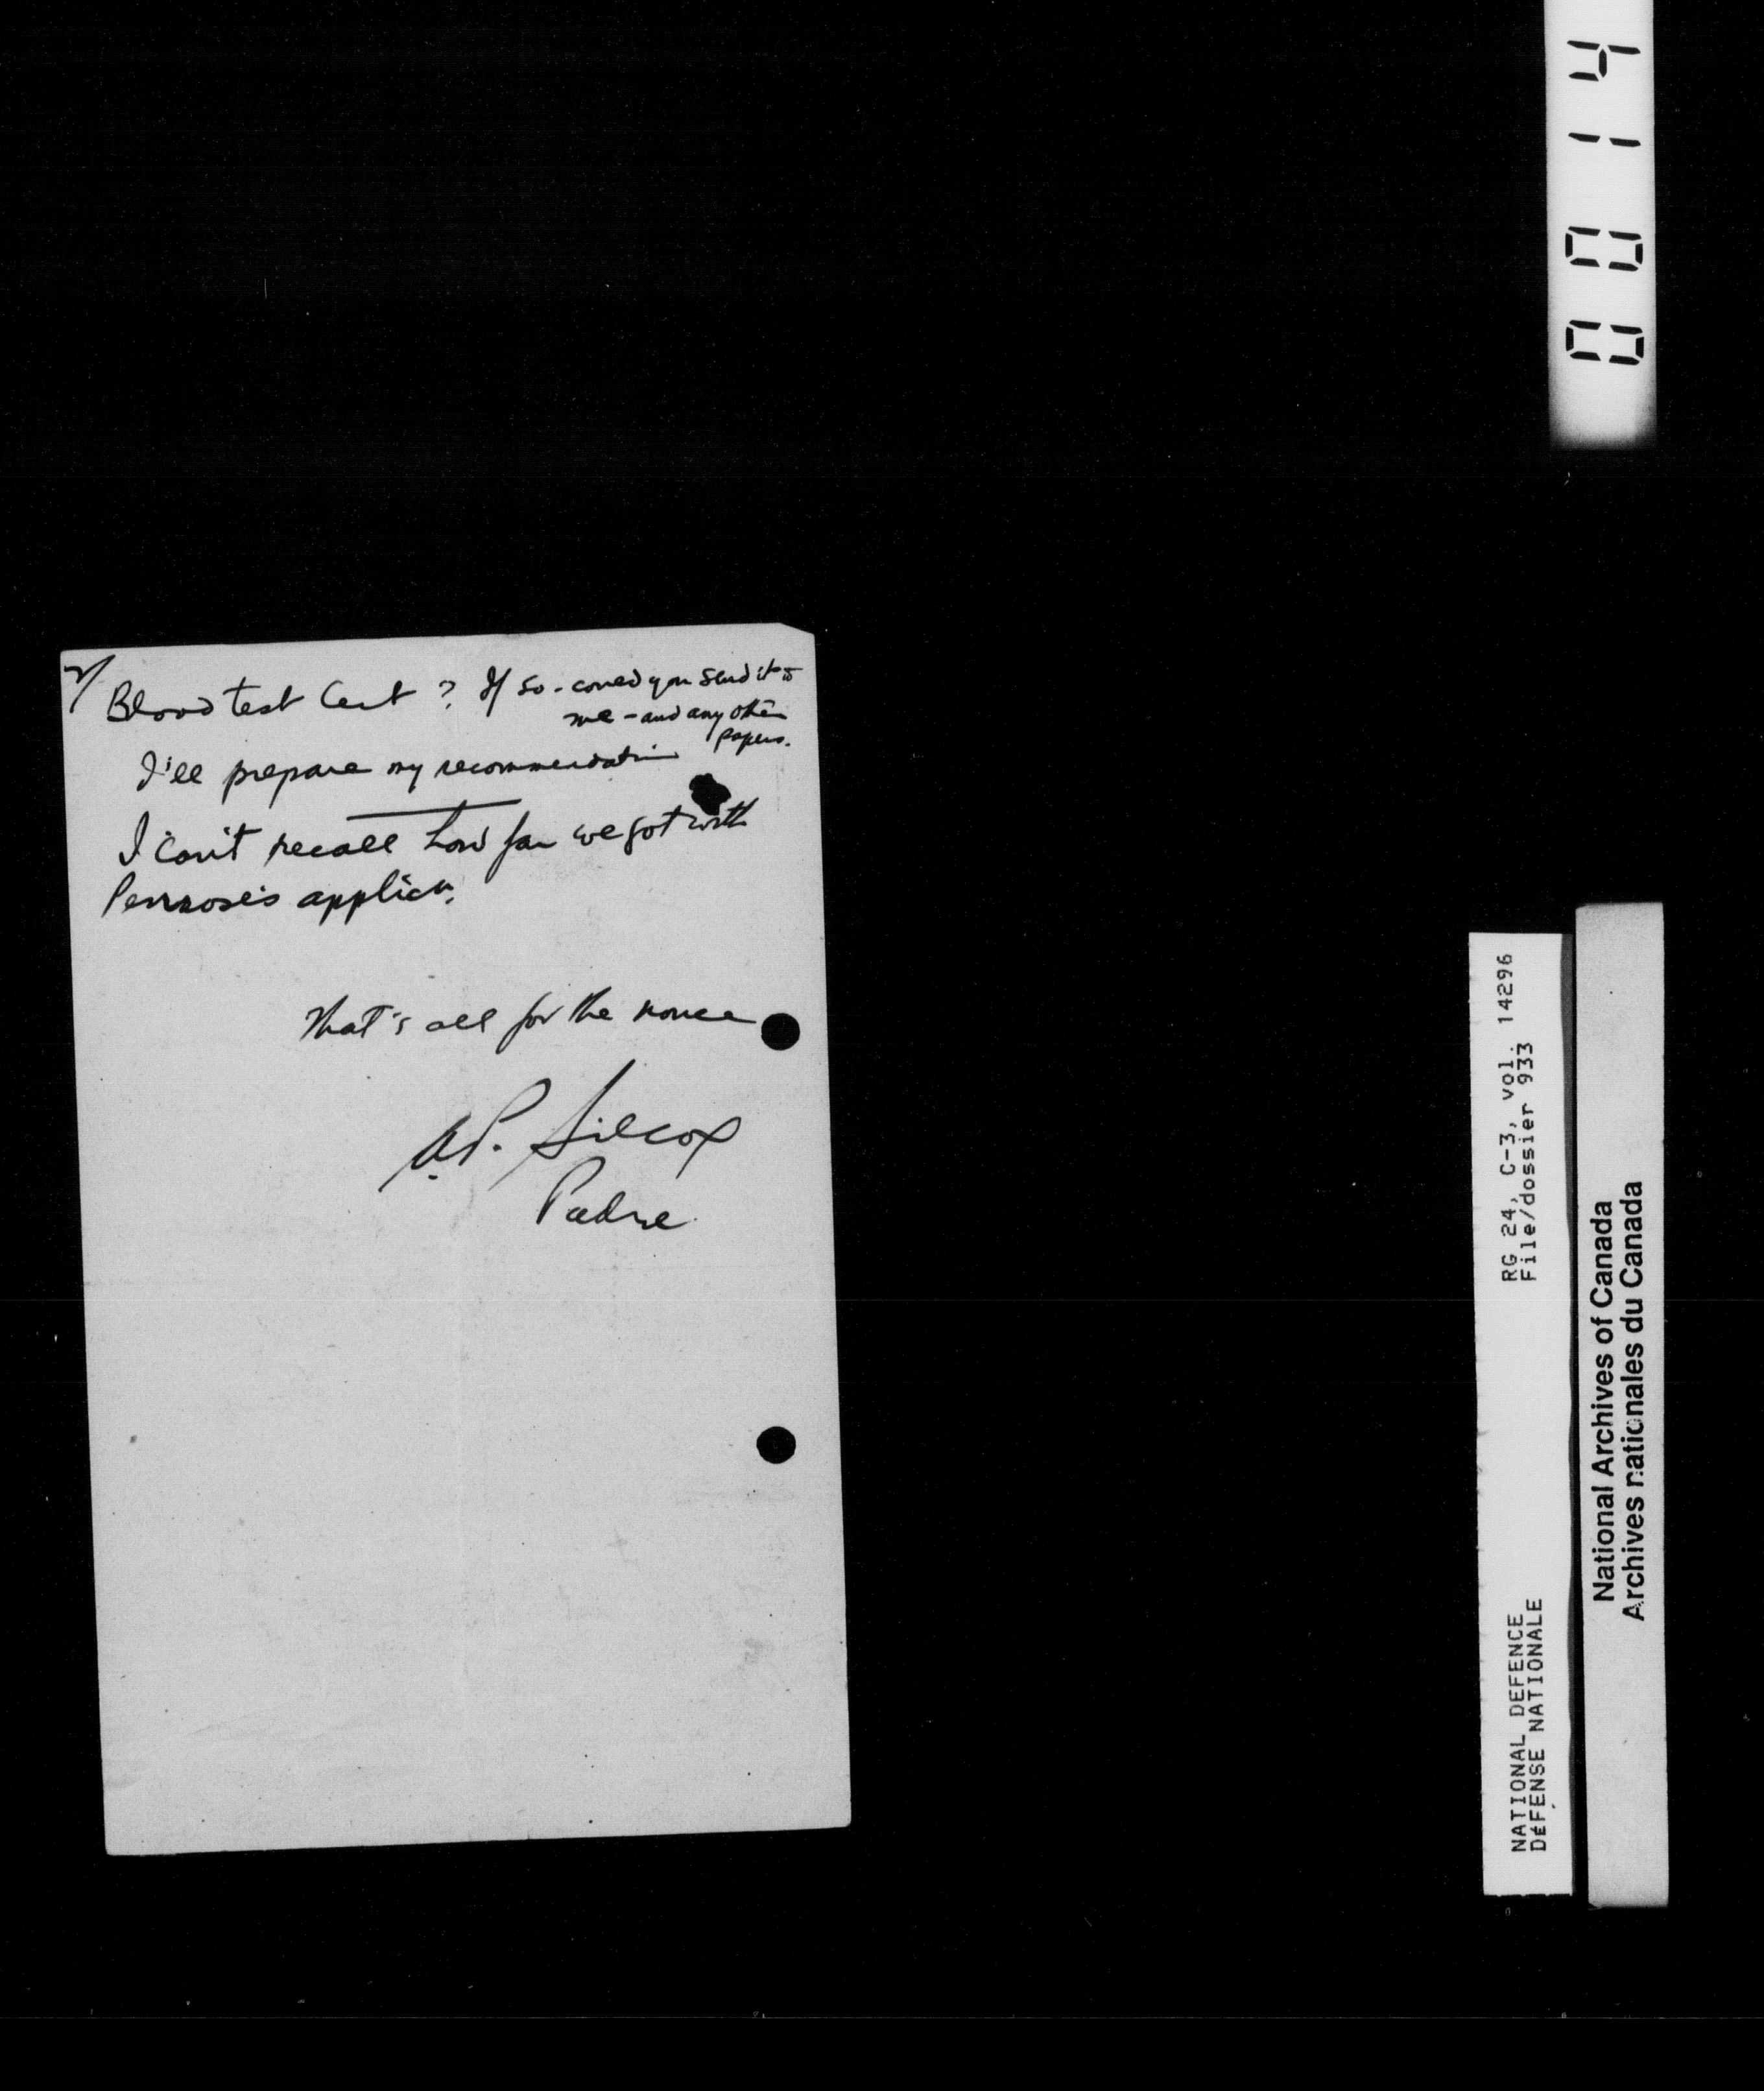 2/
Blood test Cert ? If so - could you send it to
me - and any other
papers.
I'll prepare my recommendation
I can't recall how far we got with
Penrose's applicn.
That's all for the nonce
A.P. Silcox
Padre
0014
RG 24, C-3, vol. 14296
File/dossier 933
NATIONAL DEFENCE
DÉFENSE NATIONALE
National Archives of Canada
Archives nationales du Canada